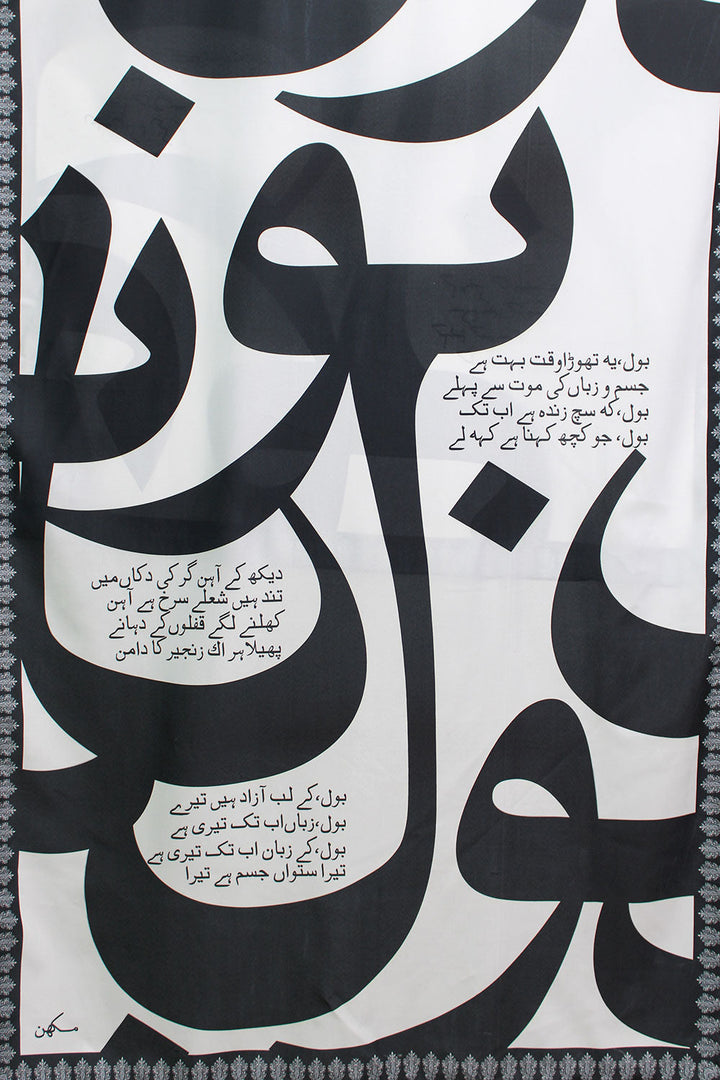 بول
بول،یہ تھوڑا وقت بہت ہے
جسم و زباں کی موت سے پہلے
بول،کہ سچ زندہ ہے اب تک
بول، جو کچھ کہنا ہے کہہ لے
دیکھ کے آہن گر کی دکاں میں
تند ہیں شعلے سرخ ہے آہن
کھلنے لگے قفلوں کے دہانے
پھیلا ہر اك زنجیر کا دامن
بول،کے لب آزاد ہیں تیرے
بول،زباں اب تک تیری ہے
بول،کے زبان اب تک تیری ہے
تیرا ستواں جسم ہے تیرا
بول
مکھن